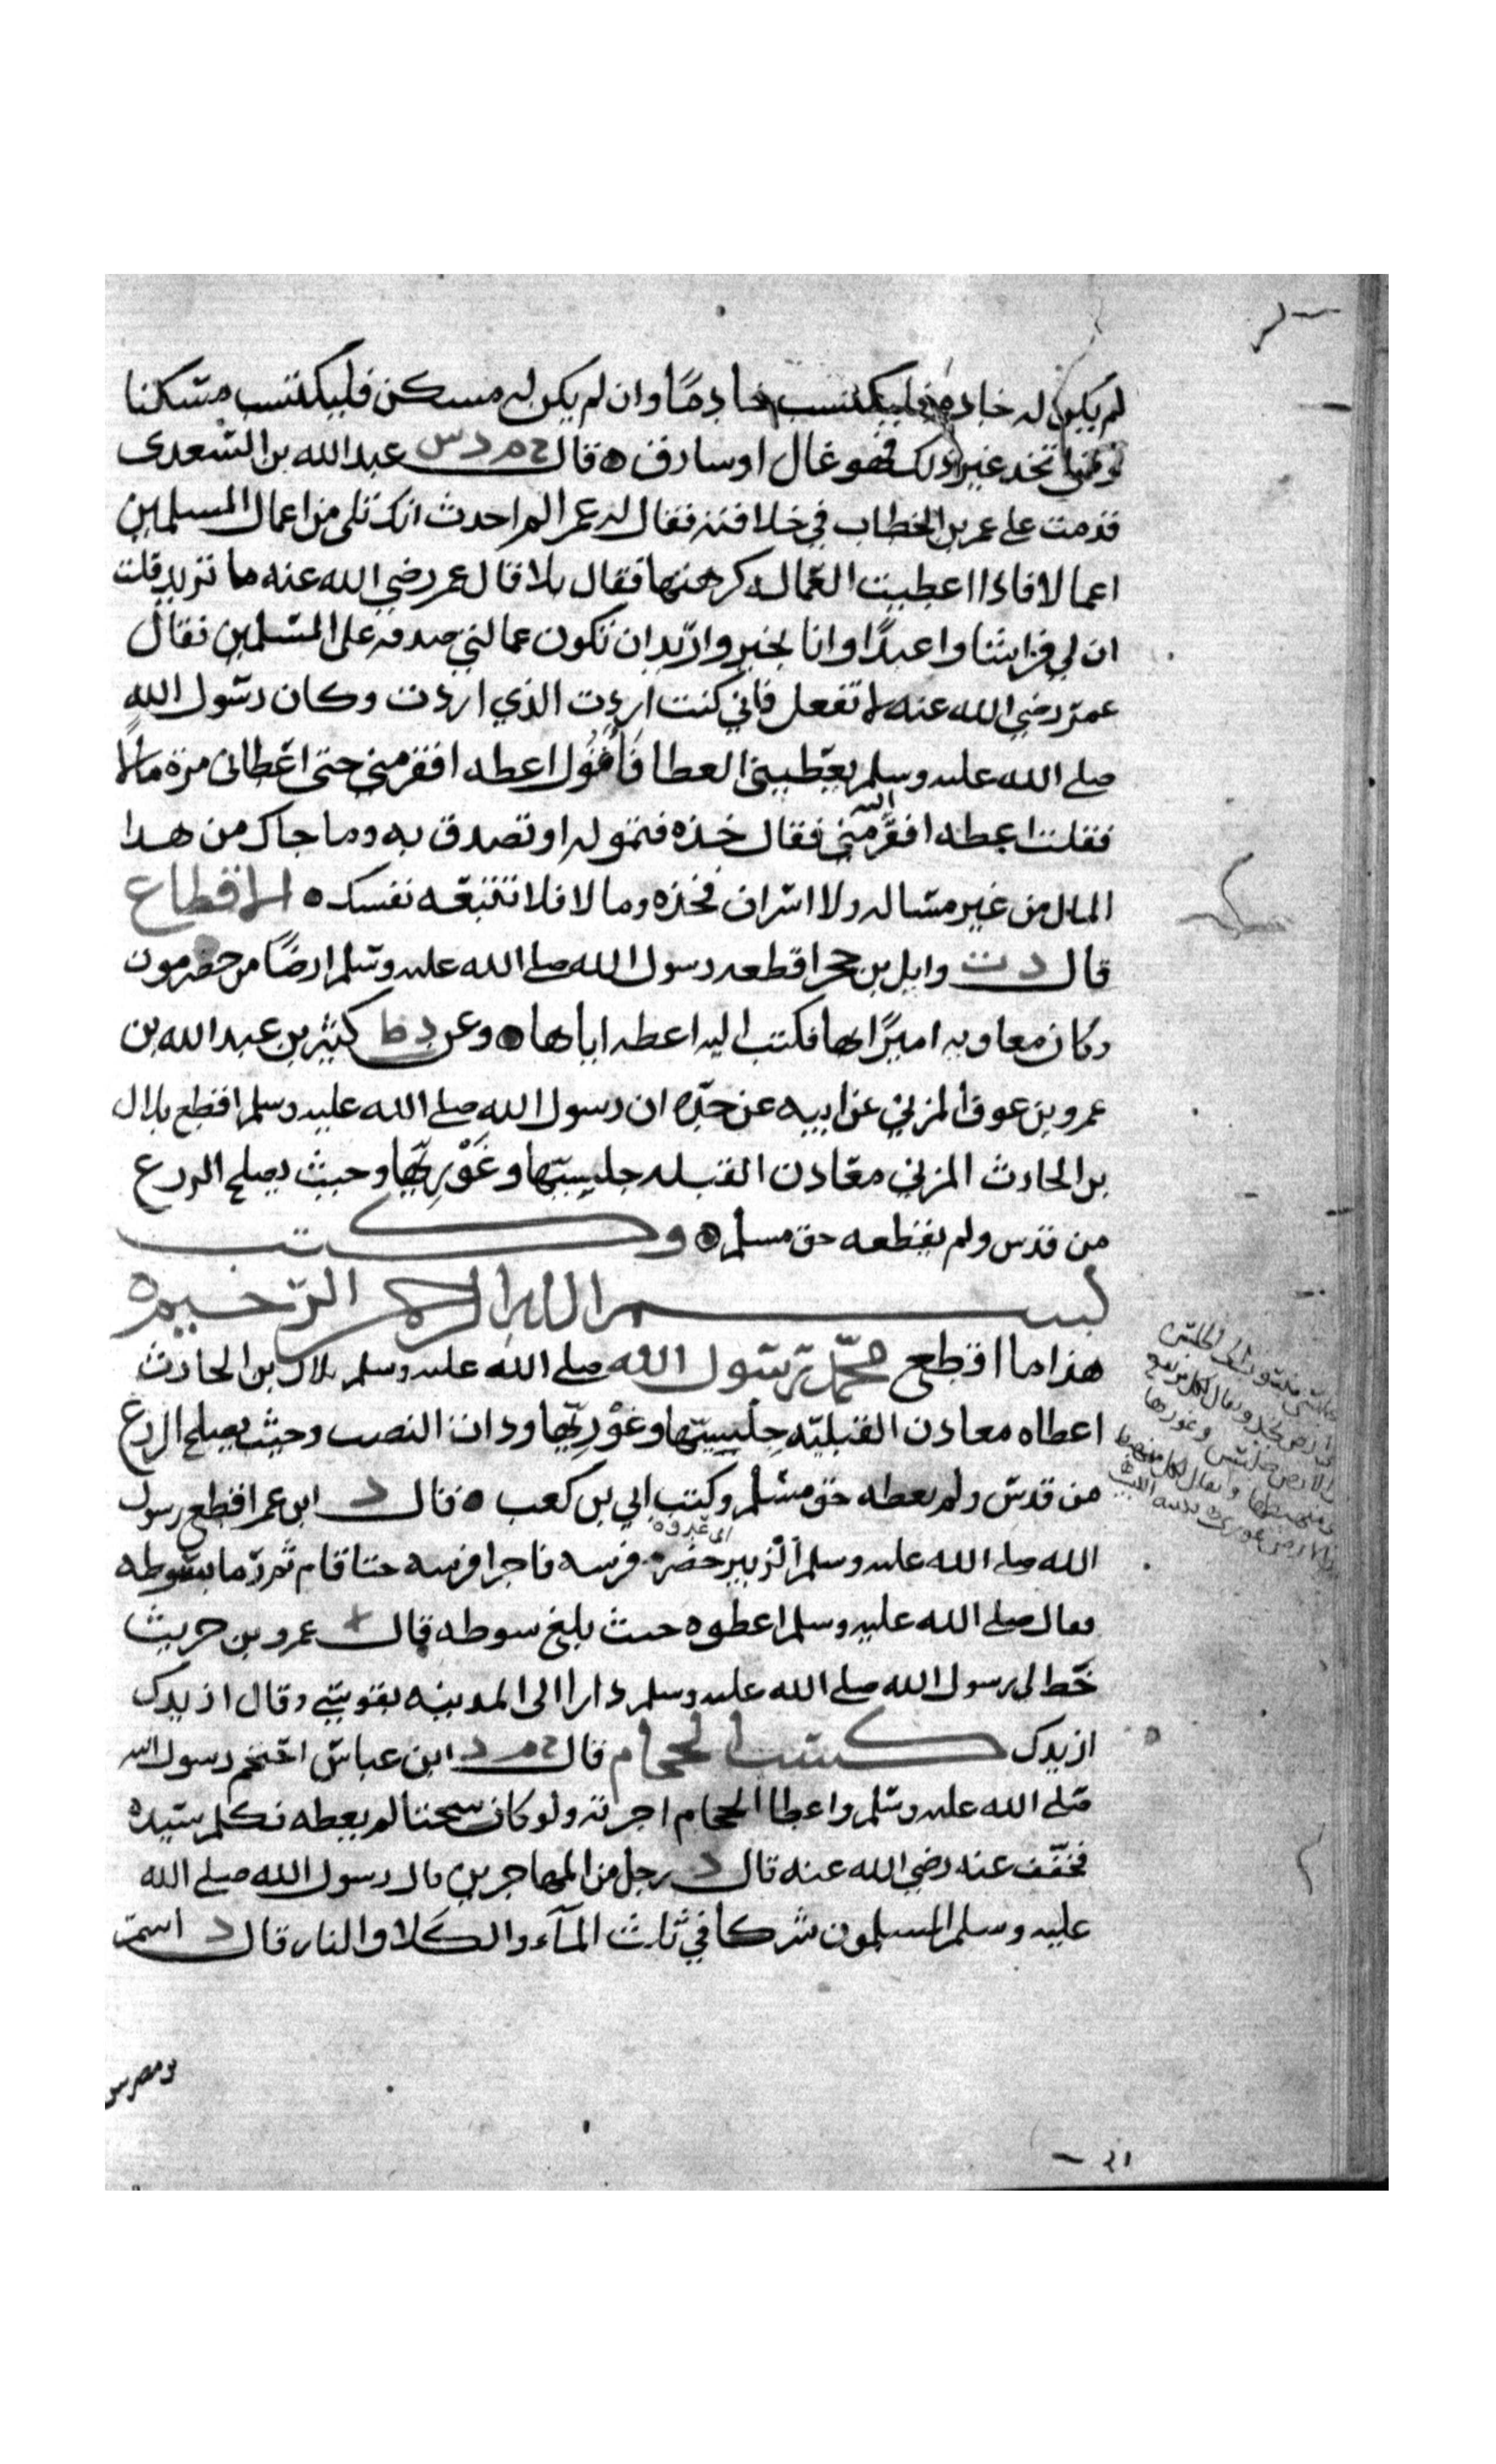 لم يكن له خادم فليكتسب خادمًا وان لم يكن له مسكن فليكتسب مسكنا
تخد غير ذلك فهو غال او سارق ه قال خ م د س عبد الله بن السعدى
قدمت على عمر بن الخطاب في خلافته فقال له عمر الم احدث انك تلى من اعمال المسلمين
اعمالا فاذا اعطيت العماله كرهتها فقال بلا قال عمر رضي الله عنه ما تريد قلت
ان لي افراسا واعبدًا وانا بخير واريد ان تكون عمالتي صدقه على المسلمين فقال
عمر رضي الله عنه لا تفعل فاني كنت اردت الذي اردت وكان رسول الله
صلى الله عليه وسلم يعطيني العطا فأقول اعطه افقر مني حتى اعطانى مرة مالا
فقلت اعطه افقر اليه مني فقال خذه فتموله او تصدق به وما جاك من هدا
المال من غير مساله ولا اشراف فخذه وما لا فلا تتبعه نفسك ه الاقطاع
قال د ت وايل بن حجر اقطعه رسول الله صلى الله عليه وسلم ارضًا من حضرموت
وكان معاويه اميرًا بها فكتب اليه اعطه اياها ه وعن د ط كثير بن عبد الله بن
عمرو بن عوف المزني عن ابيه عن جده ان رسول الله صلى الله عليه وسلم اقطع بلال
بن الحارث المزني معادن القبله جلسيتها وغَوْرِيّها وحيث يصلح الزرع
من قدس ولم يقطعه حق مسلم ه وكتب
بسم الله الرحمن الرحيم ه
هذا ما اقطع محمّد رسول الله صلى الله عليه وسلم بلال بن الحارث
اعطاه معادن القبليّه جلسيتها وغَوْرِيّها وذات النصب وحيث يصلح الزرع
من قدس ولم يعطه حق مسلم وكتب ابي بن كعب ه قال د ابن عمر اقطع رسول
الله صلى الله عليه وسلم الزبير حضر فرسه فاجرا فرسه حتا قام ثم رما بسوطه
فقال صلى الله عليه وسلم اعطوه حيث بلغ سوطه قال د عمرو بن حريث
خط لي رسول الله صلى الله عليه وسلم دارا الى المدينه بقوسي وقال ازيدك
ازيدك كسب الحجام قال خ م د ابن عباس احتجم رسول الله
صلى الله عليه وسلم واعطا الحجام اجرته ولو كان سحتا لم يعطه فكلم سيده
فخفف عنه رضي الله عنه قال د رجل من المهاجرين قال رسول الله صلى الله
عليه وسلم المسلمون شركا في ثلاث المآء والكلا والنار قال د اسمر